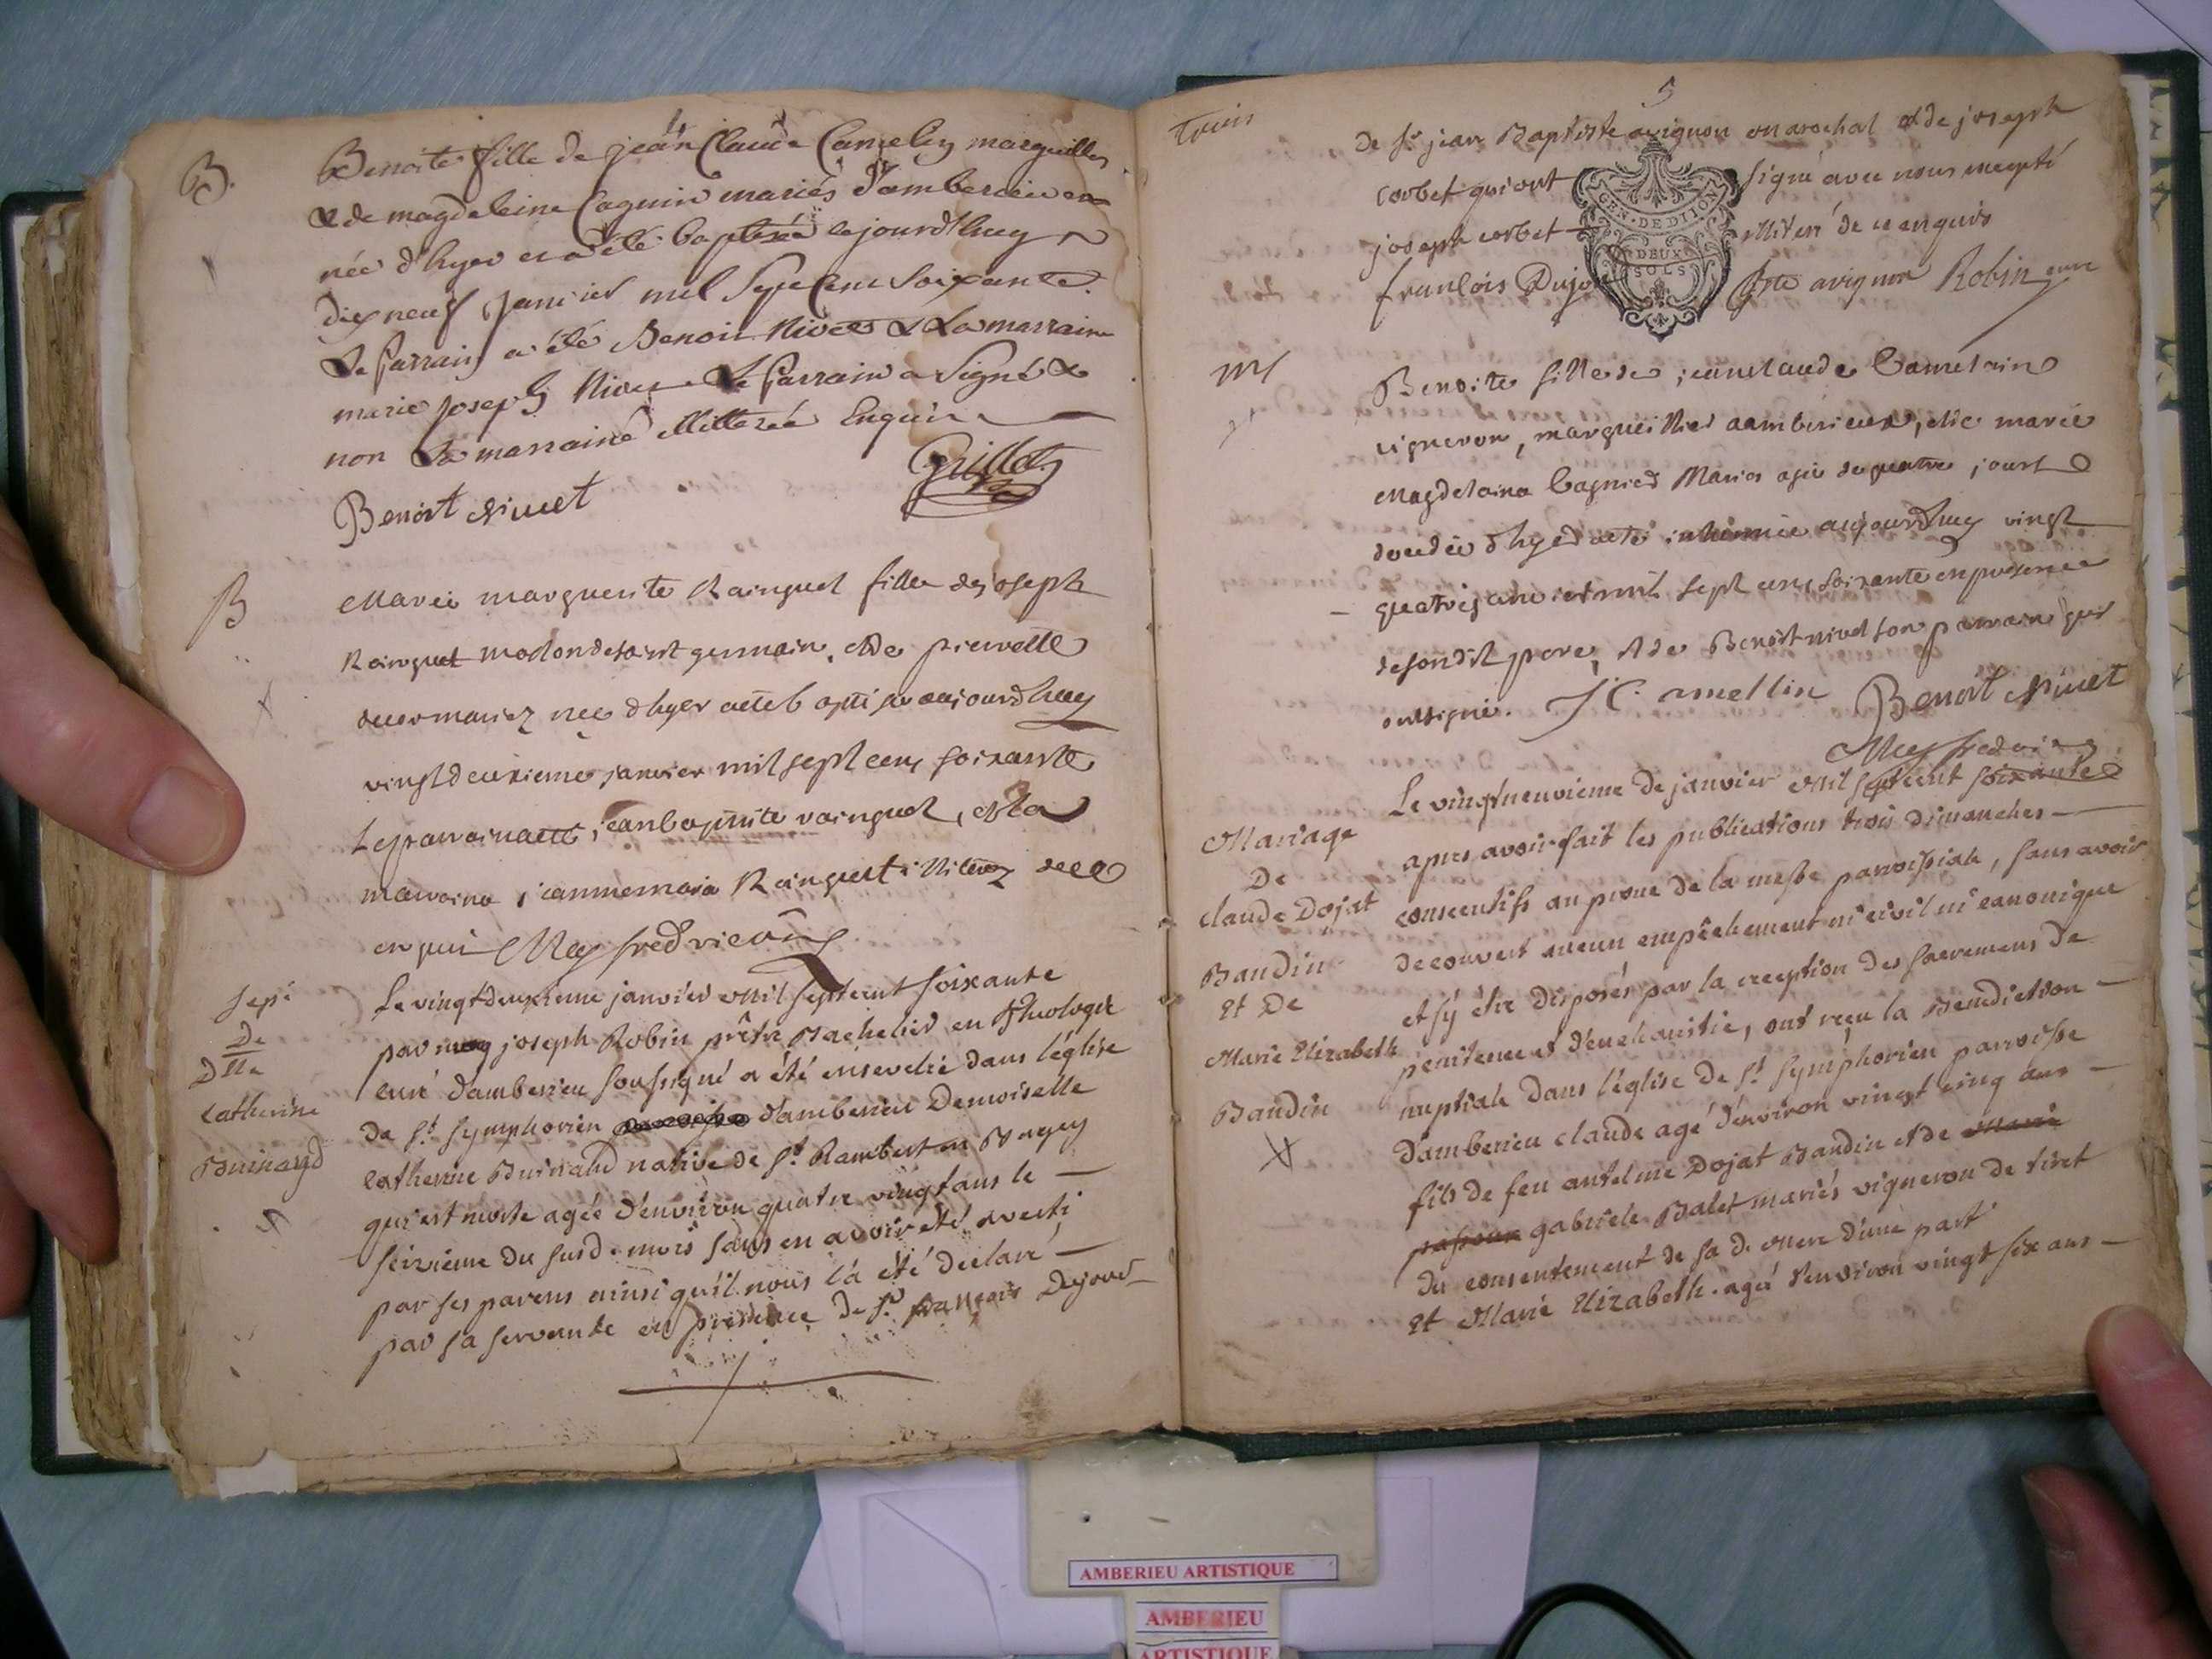 4
B.
Benoite fille de jean Claude Camelin marguiller
& de magdeleine Cagnin mariés d'amberieu en
née d'hyer et a été baptisée cejourd'huy
dix neuf Janvier mil Sept Cent Soixante.
Le parrain a été Benoit Nivet & La marraine
marie joseph Nivet Le parrain a Signé &
non La marraine illitterée Enquise
Benoit Nivet
Grillet
B
Marie marguerite Rainguet fille de joseph
Rainguet de saint germain, et de pierrette
mariez née d'hyer a été baptisée aujourd'huy
vingt deuxieme janvier mil sept cens soixante
Le parrain a été jean baptiste rainguet, et la
marraine jeanne maria Rainguet illiterez de ce
enquis Meyfredvic
Sepé
De
Dlle
Catherine
Buinand
Le vingt deuxieme janvier mil sept cent soixante
par moy joseph Robin prêtre Bachelier en théologie
curé d'amberieu soussigné a été ensevelie dans l'église
de St. Symphorien d'amberieu Demoiselle
Catherine Buinand native de St. Rambert en Bugey
qui est morte agée d'environ quatre vingt ans le
seizieme du susd. mois sans en avoir été averti
par ses parens ainsi qu'il nous l'a été declaré
par sa servante en presence de Sr. françois Dujour
trois
5
de Sr. jean Baptiste avignon marechal et de joseph
corbet qui ont signé avec nous excepté
joseph corbet illiteré de ce enquis
GEN. DE DIJON
DEUX
SOLS
francois Dujo Bte avignon Robin curé
M
Benoite fille de jean claude Camelain
vigneron, marguiellier a amberieux, et de marie
Magdelaine Cagnied Maries agée de quatre jours
decedée d'hyer a eté inhumée aujourd'huy vingt
quatre janvier mil sept cens soixante en presence
de son dit pere, et de Benoit nivet son parrain qui
ont signé. J C amellin Benoit Nivet
Meyfredvic
Mariage
De
Claude Dojat
Baudin
Et De
Marie Elizabeth
Baudin
Le vingt neuvieme de janvier mil sept cent soixante
apres avoir fait les publications trois dimanches
consecutifs au prone de la messe parroissiale, sans avoir
decouvert aucun empêchement ni civil ni canonique
et s'y être disposés par la reception des sacremens de
penitence et d'eucharistie, ont reçu la Benediction
nuptiale dans l'église de St. Symphorien parroisse
d'amberieu claude agé d'environ vingt cinq ans
fils de feu antelme Dojat Baudin et de marie
gabriele Balet mariés vigneron de tiret
du consentement de sa d. mere d'une part
Et Marie Elizabeth agée d'environ vingt six ans
AMBERIEU ARTISTIQUE
AMBERIEU
ARTISTIQUE